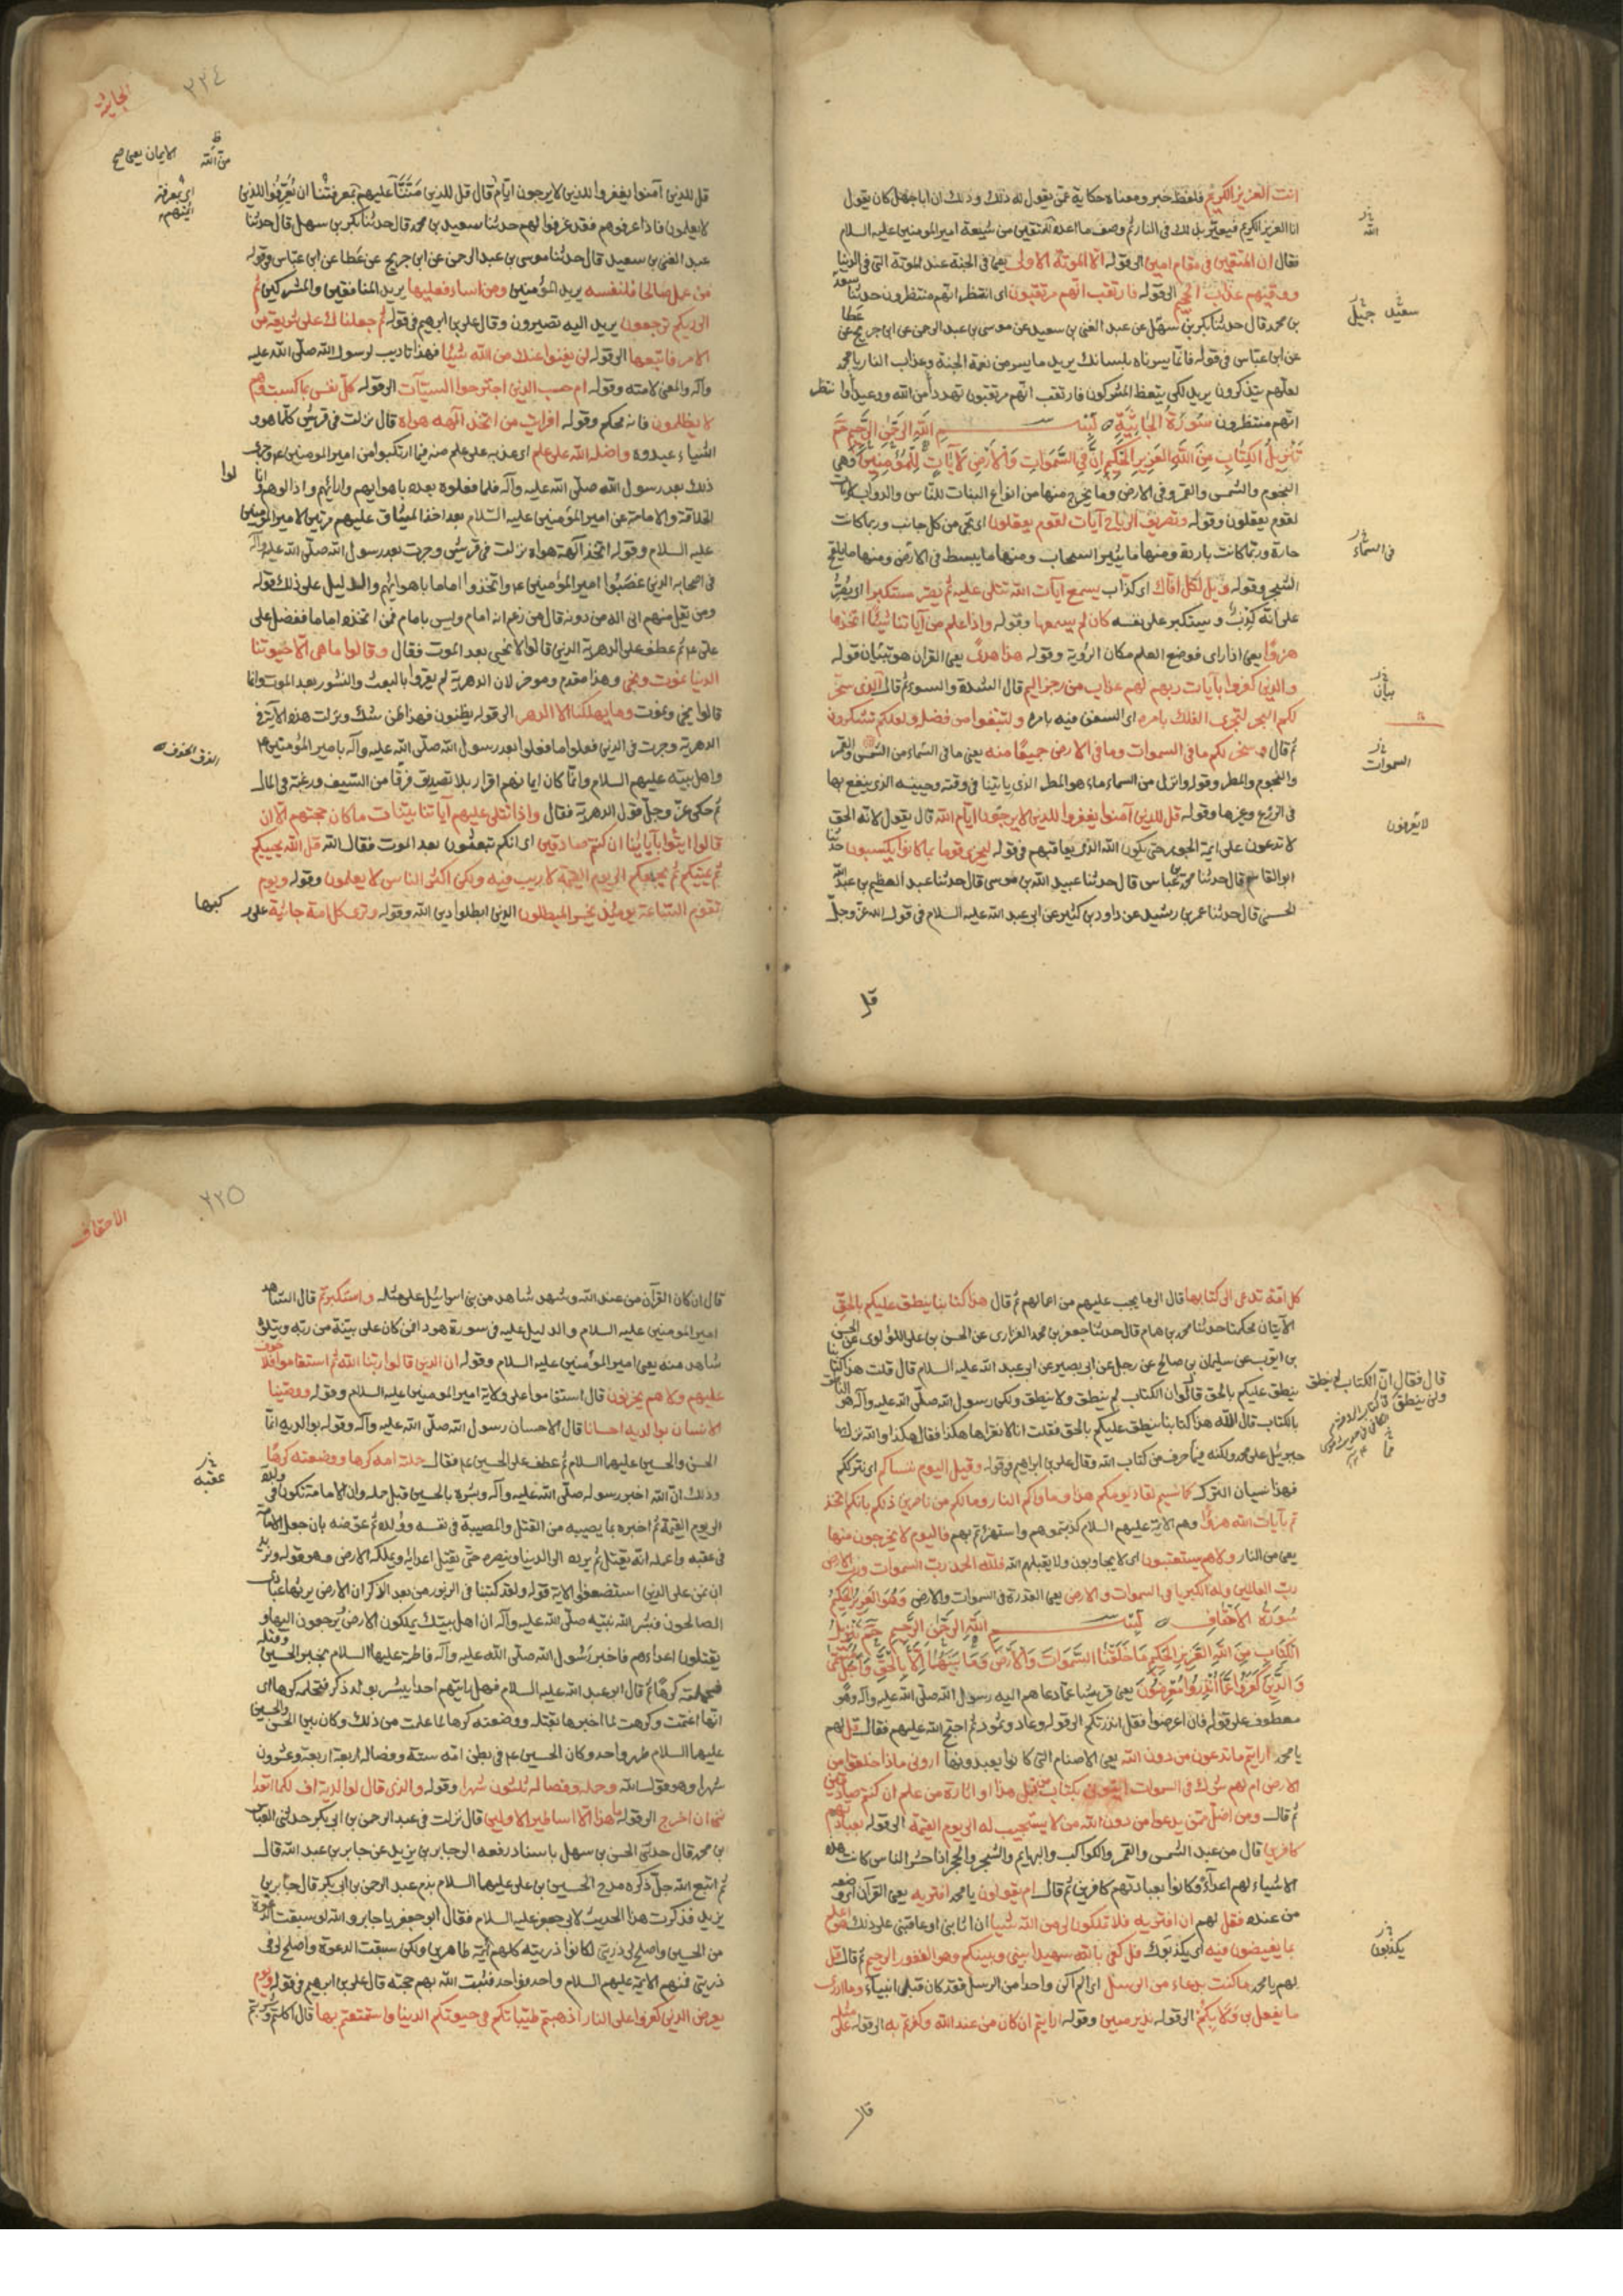 انت العزيز الكريم فلفظ خبر ومعناه حكاية عمّن يقول له ذلك وذلك ان ابا جهل كان يقول
انا العزيز الكريم فيعيّر بذلك فى النار ثم وصف ما اعده للمتقين من شيعة امير المومنين عليه السلام
فقال ان المتقين فى مقام امين الى قوله الا الموتة الاولى يعنى فى الجنة عند الموتة التى فى الدنيا
ووقيهم عذاب الجحيم الى قوله فارتقب انهم مرتقبون اى انتظر انهم منتظرون حدثنا سعيد
بن محمد قال حدثنا بكر بن سهل عن عبد الغنى بن سعيد عن موسى بن عبد الرحمن عن ابن جريج عن عطا
عن ابن عباس فى قوله فانما يسرناه بلسانك يريد ما يسر من نعمة الجنة وعذاب النار يا محمد
لعلهم يتذكرون يريد لكى يتعظ المشركون فارتقب انهم مرتقبون تهدد من الله ووعيد وانتظر
انهم منتظرون سورة الجاثية بسم الله الرحمن الرحيم حم
تنزيل الكتاب من الله العزيز الحكيم ان فى السموات والارض لآيات للمؤمنين وهى
النجوم والشمس والقمر وفى الارض وما يخرج منها من انواع النبات للناس والدواب لآيات
لقوم يعقلون وقوله وتصريف الرياح آيات لقوم يعقلون اى تجى من كل جانب وربما كانت
حارة وربما كانت باردة ومنها ما يثير السحاب ومنها ما يبسط فى الارض ومنها ما يلقح
الشجر وقوله ويل لكل افاك اى كذاب يسمع آيات الله تتلى عليه ثم يصر مستكبرا اى يصر
على انه كذب ويستكبر على نفسه كان لم يسمعها وقوله واذا علم من آياتنا شيئا اتخذها
هزوا يعنى اذا راى فوضع العلم مكان الرؤية وقوله هذا هدى يعنى القران هو تبيان قوله
والذين كفروا بآيات ربهم لهم عذاب من رجز اليم قال الشدة والسوء ثم قال الذى سخر
لكم البحر لتجرى الفلك بامره اى السفن فيه بامره ولتبتغوا من فضله ولعلكم تشكرون
ثم قال وسخر لكم ما فى السموات وما فى الارض جميعا منه يعنى ما فى السماء من الشمس والقمر
والنجوم والمطر وقوله وانزل من السماء ماء هو المطر الذى ياتينا فى وقته وحينه الذى ينفع بها
فى الزرع وغيرها وقوله قل للذين آمنوا يغفروا للذين لا يرجون ايام الله قال يقول لائمة الحق
لا تدعون على ائمة الجور حتى يكون الله الذى يعاقبهم فى قوله ليجزى قوما بما كانوا يكسبون حدثنا
ابو القاسم قال حدثنا محمد بن عباس قال حدثنا عبيد الله بن موسى قال حدثنا عبد العظيم بن عبد الله
الحسنى قال حدثنا عمر بن رشيد عن داود بن كثير عن ابى عبد الله عليه السلام فى قول الله عز وجل
الله
سعيد جبيل
فى السماء
بيان
السموات
لا يعرفون
قل
الجاثية
٢٢٤
من الله
الايمان يعنى صح
قل للذين آمنوا يغفروا للذين لا يرجون ايام قال قل للذين مننّا عليهم بمعرفتنا ان يعرّفوا للذين
لا يعلمون فاذا عرفوهم فقد غفروا لهم حدثنا سعيد بن محمد قال حدثنا بكر بن سهل قال حدثنا
عبد الغنى بن سعيد قال حدثنا موسى بن عبد الرحمن عن ابن جريج عن عطا عن ابن عباس وقوله
من عمل صالحا فلنفسه يريد المؤمنين ومن اساء فعليها يريد المنافقين والمشركين ثم
الى ربكم ترجعون يريد اليه تصيرون وقال على بن ابرهيم فى قوله ثم جعلناك على شريعة من
الامر فاتبعها الى قوله لن يغنوا عنك من الله شيئا فهذا تاديب لرسول الله صلى الله عليه
وآله والمعنى لامته وقوله ام حسب الذين اجترحوا السيئات الى قوله كل نفس بما كسبت وهم
لا يظلمون فانه محكم وقوله افرايت من اتخذ آلهه هواه قال نزلت فى قريش كلما هووا
شيئا عبدوه واضله الله على علم اى عذبه على علم منه فيما ارتكبوا من امير المومنين ع وجرى
ذلك بعد رسول الله صلى الله عليه وآله فلما فعلوه بعده باهوايهم وارايهم وازالوهم
الخلافة والامامة عن امير المؤمنين عليه السلام بعد اخذ الميثاق عليهم مرتين لامير المومنين
عليه السلام وقوله اتخذ آلهة هواه نزلت فى قريش وجرت بعد رسول الله صلى الله عليه وآله
فى اصحابه الذين غصبوا امير المؤمنين ع واتخذوا اماما باهوائهم والدليل على ذلك قوله
ومن يقل منهم انى اله من دونه قال من زعم انه امام وليس بامام فمن اتخذه اماما ففضل على
على ع ثم عطف على الدهرية الذين قالوا لا نحيى بعد الموت فقال وقالوا ما هى الا حيوتنا
الدنيا نموت ونحيى وهذا مقدم وموخر لان الدهرية لم يقروا بالبعث والنشور بعد الموت وانما
قالوا نحيى ونموت وما يهلكنا الا الدهر الى قوله يظنون فهذا ظن شك ونزلت هذه الآية فى
الدهرية وجرت فى الذين فعلوا ما فعلوا بعد رسول الله صلى الله عليه وآله بامير المؤمنين ع
واهل بيته عليهم السلام وانما كان ايمانهم اقرار بلا تصديق فرقا من السيف ورغبة فى المال
ثم حكى عز وجل قول الدهرية فقال واذا تتلى عليهم آياتنا بينات ما كان حجتهم الا ان
قالوا ائتوا بآبائنا ان كنتم صادقين اى انكم تبعثون بعد الموت فقال الله قل الله يحييكم
ثم يميتكم ثم يجمعكم الى يوم القيمة لا ريب فيه ولكن اكثر الناس لا يعلمون وقوله ويوم
تقوم الساعة يومئذ يخسر المبطلون الذين ابطلوا دين الله وقوله وترى كل امة جاثية على
لوا
ركبها
كل امة تدعى الى كتابها قال الى ما يجب عليهم من اعمالهم ثم قال هذا كتابنا ينطق عليكم بالحق
الآيتان محكمتان حدثنا محمد بن همام قال حدثنا جعفر بن محمد الفزارى عن الحسن بن على اللؤلوى عن الحسن
بن ايوب عن سليمان بن صالح عن رجل عن ابى بصير عن ابى عبد الله عليه السلام قال قلت هذا كتابنا
ينطق عليكم بالحق قال ان الكتاب لم ينطق ولا ينطق ولكن رسول الله صلى الله عليه وآله هو الناطق
بالكتاب قال الله هذا كتابنا ينطق عليكم بالحق فقلت انا لا نقراها هكذا فقال هكذا والله نزل بها
جبرئيل على محمد ولكنه فيما حرف من كتاب الله وقال على بن ابراهيم فى قوله وقيل اليوم ننساكم اى نترككم
فهذا نسيان الترك كما نسيتم لقاء يومكم هذا وماواكم النار وما لكم من ناصرين ذلكم بانكم اتخذ
تم بآيات الله هزوا وهم الائمة عليهم السلام كذبتموهم واستهزئتم بهم فاليوم لا يخرجون منها
يعنى من النار ولا هم يستعتبون اى لا يجاوبون ولا يقبلهم الله فلله الحمد رب السموات ورب الارض
رب العالمين وله الكبرياء فى السموات والارض يعنى القدرة فى السموات والارض وهو العزيز الحكيم
سورة الاحقاف بسم الله الرحمن الرحيم حم تنزيل
الكتاب من الله العزيز الحكيم ما خلقنا السموات والارض وما بينهما الا بالحق واجل مسمى
والذين كفروا عما انذروا معرضون يعنى قريشا عما دعاهم اليه رسول الله صلى الله عليه وآله وهو
معطوف على قوله فان اعرضوا فقل انذرتكم الى قوله وعاد وثمود ثم احتج الله عليهم فقال قل لهم
يا محمد ارايتم ما تدعون من دون الله يعنى الاصنام التى كانوا يعبدونها ارونى ماذا خلقوا من
الارض ام لهم شرك فى السموات ايتونى بكتاب من قبل هذا او اثارة من علم ان كنتم صادقين
ثم قال ومن اضل ممن يدعوا من دون الله من لا يستجيب له الى يوم القيمة الى قوله بعبادتهم
كافرين قال من عبد الشمس والقمر والكواكب والبهايم والشجر والحجر اذا حشر الناس كانت هذه
الاشياء لهم اعداء وكانوا بعبادتهم كافرين ثم قال ام يقولون يا محمد افتريه يعنى القرآن اى وضعه
من عنده فقل لهم ان افتريته فلا تملكون لى من الله شيئا ان اثابنى او عاقبنى على ذلك هو اعلم
بما تفيضون فيه اى يكذبون قل كفى بالله شهيدا بينى وبينكم وهو الغفور الرحيم ثم قال قل
لهم يا محمد ما كنت بدعا من الرسل اى لم اكن واحدا من الرسل فقد كان قبلى انبياء وما ادرى
ما يفعل بى ولا بكم الى قوله نذير مبين وقوله ارايتم ان كان من عند الله وكفرتم به الى قوله على مثله
قال فقال ان الكتاب لم ينطق
ولن ينطق
يكذبون
قال
الاحقاف
٢٢٥
قال ان كان القرآن من عند الله وشهد شاهد من بنى اسرائيل على مثله واستكبرتم قال الشاهد
امير المومنين عليه السلام والدليل عليه فى سورة هود افمن كان على بينة من ربه ويتلوه
شاهد منه يعنى امير المؤمنين عليه السلام وقوله ان الذين قالوا ربنا الله ثم استقاموا فلا خوف
عليهم ولا هم يحزنون قال استقاموا على ولاية امير المومنين عليه السلام وقوله ووصينا
الانسان بوالديه احسانا قال الاحسان رسول الله صلى الله عليه وآله وقوله بوالديه انما
الحسن والحسين عليهما السلام ثم عطف على الحسين ع فقال حملته امه كرها ووضعته كرها
وذلك ان الله اخبر رسوله صلى الله عليه وآله وبشره بالحسين قبل حمله وان الامامة تكون فى ولده
الى يوم القيمة ثم اخبره بما يصيبه من القتل والمصيبة فى نفسه وولده ثم عوضه بان جعل الامامة
فى عقبه واعلمه انه يقتل ثم يرده الى الدنيا وينصره حتى يقتل اعدائه ويملكه الارض وهو قوله ونريد
ان نمن على الذين استضعفوا الاية قوله ولقد كتبنا فى الزبور من بعد الذكر ان الارض يرثها عبادى
الصالحون فبشر الله نبيه صلى الله عليه وآله ان اهل بيتك يملكون الارض يرجعون اليها و
يقتلون اعداءهم فاخبر رسول الله صلى الله عليه وآله فاطمة عليها السلام بخبر الحسين وقتله
فحملته كرها ثم قال ابو عبد الله عليه السلام فهل رايتم احدا يبشر بولد ذكر فتحمله كرها اى
انها اغتمت وكرهت لما اخبرها بقتله ووضعته كرها لما علمت من ذلك وكان بين الحسن والحسين
عليهما السلام طهر واحد وكان الحسين ع فى بطن امه ستة وفصاله اربعة اربعة وعشرون
شهرا وهو قول الله وحمله وفصاله ثلثون شهرا وقوله والذى قال لوالديه اف لكما اتعدا
ننى ان اخرج الى قوله ما هذا الا اساطير الاولين قال نزلت فى عبد الرحمن بن ابى بكر حدثنى العباس
بن محمد قال حدثنى الحسن بن سهل باسناد رفعه الى جابر بن يزيد عن جابر بن عبد الله قال
ثم اتبع الله جل ذكره مدح الحسين بن على عليهما السلام بذم عبد الرحمن بن ابى بكر قال جابر بن
يزيد فذكرت هذا الحديث لابى جعفر عليه السلام فقال ابو جعفر يا جابر والله لو سبقت الدعوة
من الحسين واصلح لى ذريتى لكانوا ذريته كلهم ائمة طاهرين ولكن سبقت الدعوة واصلح لى فى
ذريتى فمنهم الائمة عليهم السلام واحد فواحد فثبت الله بهم حجته قال على بن ابراهيم فى قوله ويوم
يعرض الذين كفروا على النار اذهبتم طيباتكم فى حيوتكم الدنيا واستمتعتم بها قال اكلتم وشربتم
عقبه